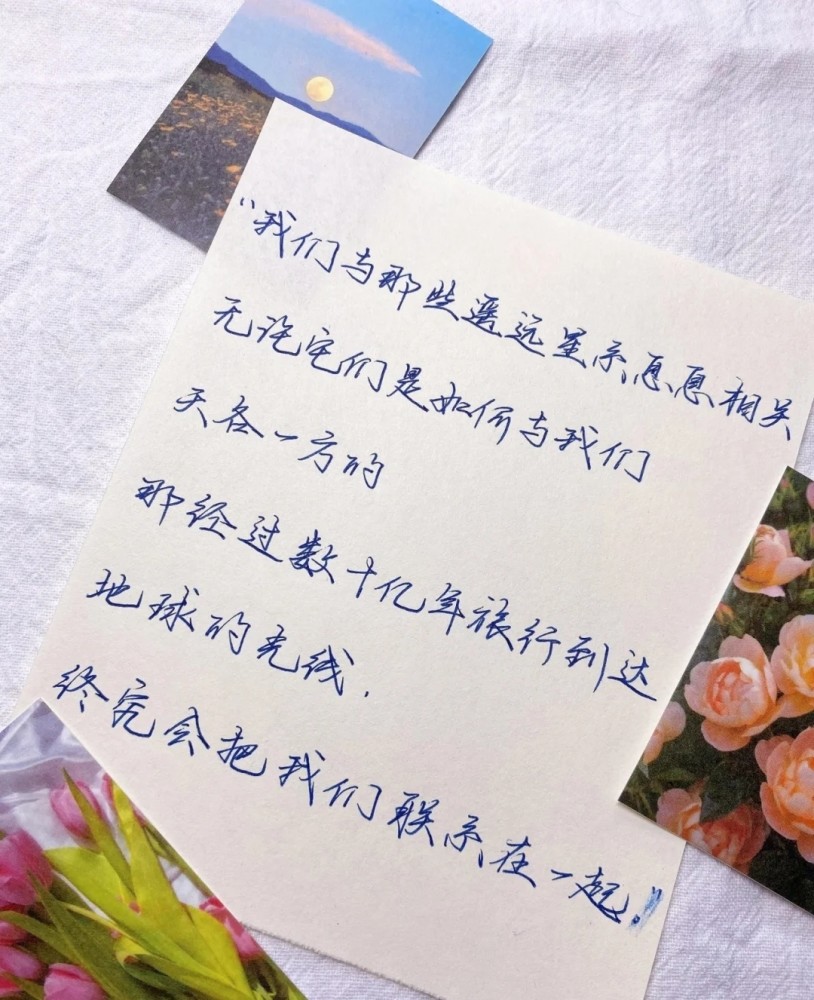 “我们与那些遥远星系息息相关
无论它们是如何与我们
天各一方的
那经过数十亿年旅行到达
地球的光线，
终究会把我们联系在一起！”